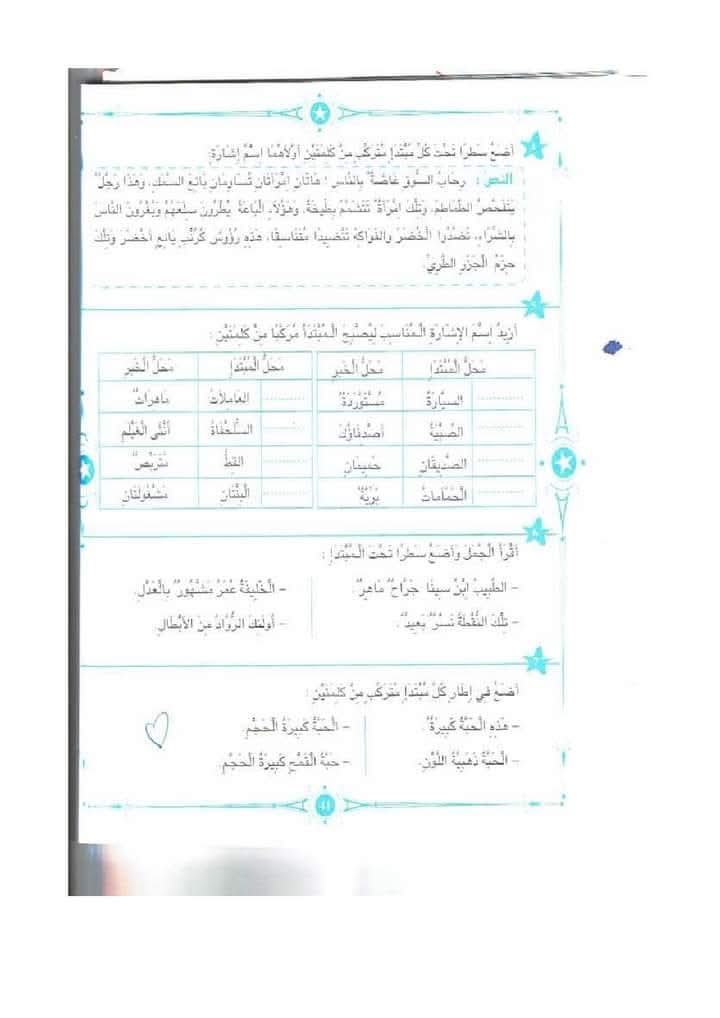 4
أَضَعُ سَطْرًا تَحْتَ كُلِّ مُبْتَدَإٍ مُتَرَكِّبٍ مِنْ كَلِمَتَيْنِ أُولَاهُمَا اِسْمُ إِشَارَةٍ:
النص : رِحَابُ السُّوقِ غَاصَّةٌ بِالنَّاسِ : هَاتَانِ اِمْرَأَتَانِ تُسَاوِمَانِ بَائِعَ السَّمَكِ، وَهَذَا رَجُلٌ
يَتَفَحَّصُ الطَّمَاطِمَ، وَتِلْكَ اِمْرَأَةٌ تَتَشَمَّمُ بِطِّيخَةً، وَهَؤُلَاءِ الْبَاعَةُ يُطْرُونَ سِلَعَهُمْ وَيُغْرُونَ النَّاسَ
بِالشِّرَاءِ، نَضَّدُوا الْخُضَرَ وَالْفَوَاكِهَ تَنْضِيدًا مُتَنَاسِقًا، هَذِهِ رُؤُوسُ كُرُنْبٍ يَانِعٍ أَخْضَرَ وَتِلْكَ
حِزَمُ الْجَزَرِ الطَّرِيِّ.
5
أَزِيدُ اِسْمَ الْإِشَارَةِ الْمُنَاسِبَ لِيُصْبِحَ الْمُبْتَدَأُ مُرَكَّبًا مِنْ كَلِمَتَيْنِ :
مَحَلُّ الْمُبْتَدَإِ مَحَلُّ الْخَبَرِ مَحَلُّ الْمُبْتَدَإِ مَحَلُّ الْخَبَرِ
............ السَّيَّارَةُ مُسْتَوْرَدَةٌ ............ الْعَامِلَاتُ مَاهِرَاتٌ
............ الصِّبْيَةُ أَصْدِقَاؤُكَ ............ السُّلَحْفَاةُ أُنْثَى الْغَيْلَمِ
............ الصَّدِيقَانِ حَمِيمَانِ ............ الْقِطُّ مُتَرَبِّصٌ
............ الْحَمَامَاتُ بَرِّيَّةٌ ............ الْبِنْتَانِ مَشْغُولَتَانِ
6
أَقْرَأُ الْجُمَلَ وَأَضَعُ سَطْرًا تَحْتَ الْمُبْتَدَإِ :
– الطَّبِيبُ ابْنُ سِينَا جَرَّاحٌ مَاهِرٌ. – الْخَلِيفَةُ عُمَرُ مَشْهُورٌ بِالْعَدْلِ.
– تِلْكَ النُّقْطَةُ نَسْرٌ بَعِيدٌ. – أُولَئِكَ الرُّوَّادُ مِنَ الْأَبْطَالِ.
7
أَضَعُ فِي إِطَارٍ كُلَّ مُبْتَدَإٍ مُتَرَكِّبٍ مِنْ كَلِمَتَيْنِ :
– هَذِهِ الْحَبَّةُ كَبِيرَةٌ. – الْحَبَّةُ كَبِيرَةُ الْحَجْمِ.
– الْحَبَّةُ ذَهَبِيَّةُ اللَّوْنِ. – حَبَّةُ الْقَمْحِ كَبِيرَةُ الْحَجْمِ.
41